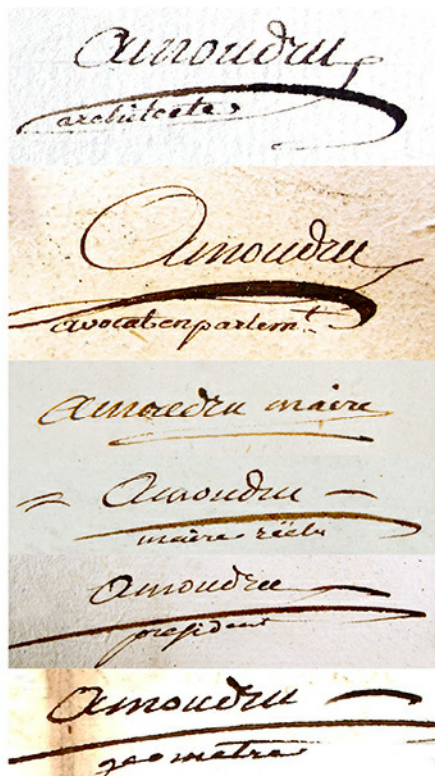 Amoudru
architecte
Amoudru
avocat en parlemt
Amoudru maire
Amoudru
maire réélu
Amoudru
president
Amoudru
geometre